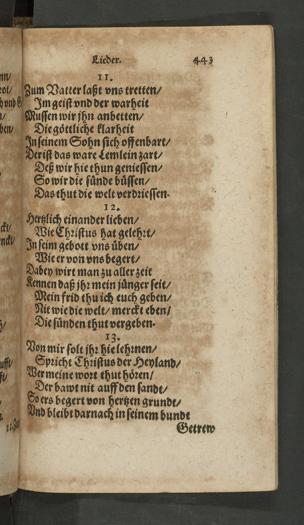 Lieder. 443
11.
Zum Vatter laßt vns tretten/
Im geist vnd der warheit
Mussen wir jhn anbetten/
Die göttliche klarheit
In seinem Sohn sich offenbart/
Der ist das ware Lemlein zart/
Deß wir hie thun geniessen/
So wir die sünde büssen/
Das thut die welt verdriessen.
12.
Hertzlich einander lieben/
Wie Christus hat gelehrt/
In seim gebott vns üben/
Wie er von vns begert/
Dabey wirt man zu aller zeit
Kennen daß jhr mein jünger seit/
Mein frid thu ich euch geben/
Nit wie die welt/ merckt eben/
Die sünden thut vergeben.
13.
Von mir solt jhr hie lehrnen/
Spricht Christus der Heyland/
Wer meine wort thut hören/
Der bawt nit auff den sandt/
So ers begert von hertzen grundt/
Vnd bleibt darnach in seinem bundt
Getrew